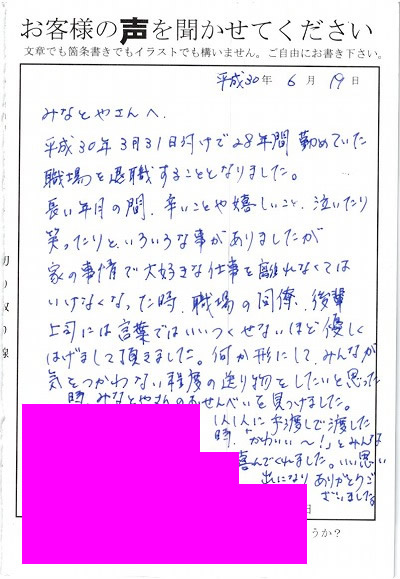 お客様の声を聞かせてください
文章でも箇条書きでもイラストでも構いません。ご自由にお書き下さい。
平成30年 6月 19日
みなとやさんへ.
平成30年3月31日付けで28年間勤めていた
職場を退職することとなりました。
長い年月の間、辛いことや嬉しいこと、泣いたり
笑ったりと、いろいろな事がありましたが
家の事情で大好きな仕事を離れなくては
いけなくなった時、職場の同僚、後輩
上司には言葉ではいいつくせないほど優しく
はげまして頂きました。何か形にして、みんなが
気をつかわない程度の送り物をしたいと思った
時、みなとやさんのおせんべいを見つけました。
1人1人に手渡しで渡した
時、"かわいい〜!"とみんな
喜んでくれました。いい思い
出になりありがとうご
ざいました。
日
うか?
切り取り線